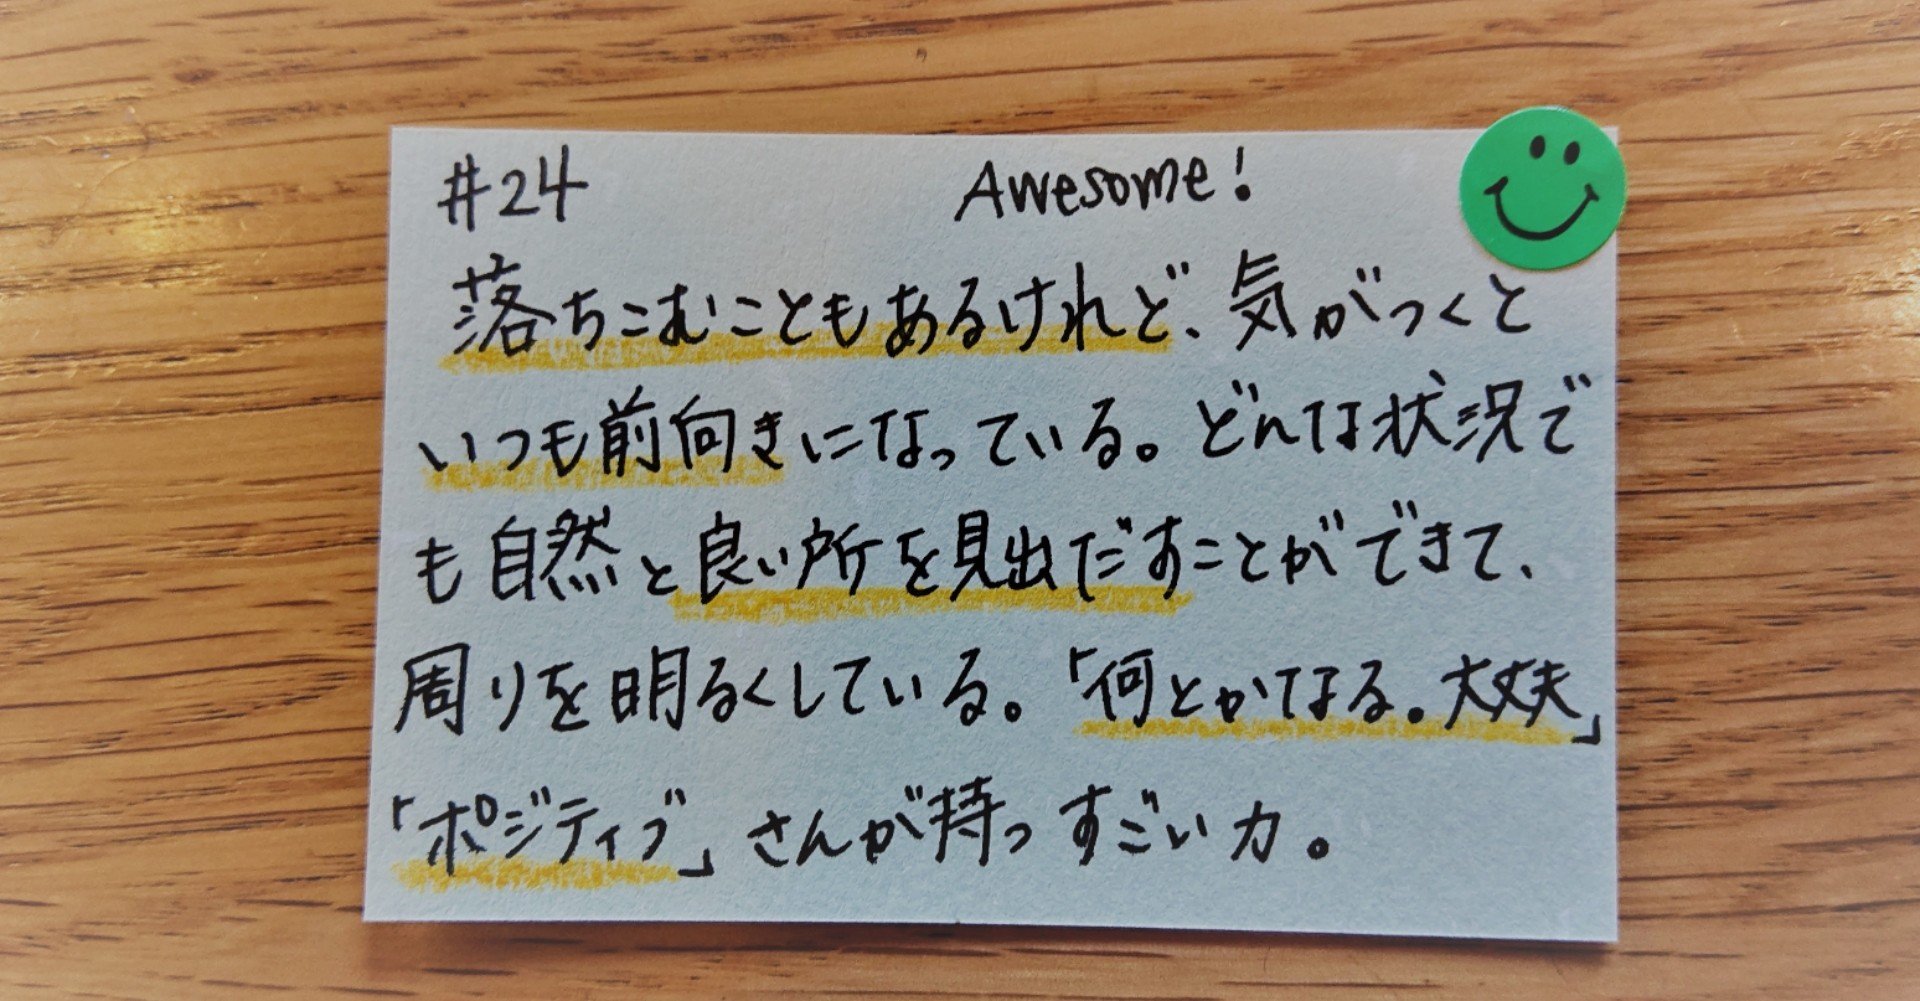 #24 Awesome!
落ちこむこともあるけれど、気がつくと
いつも前向きになっている。どんな状況で
も自然と良い所を見出だすことができて、
周りを明るくしている。「何とかなる。大丈夫」
「ポジティブ」さんが持つすごい力。